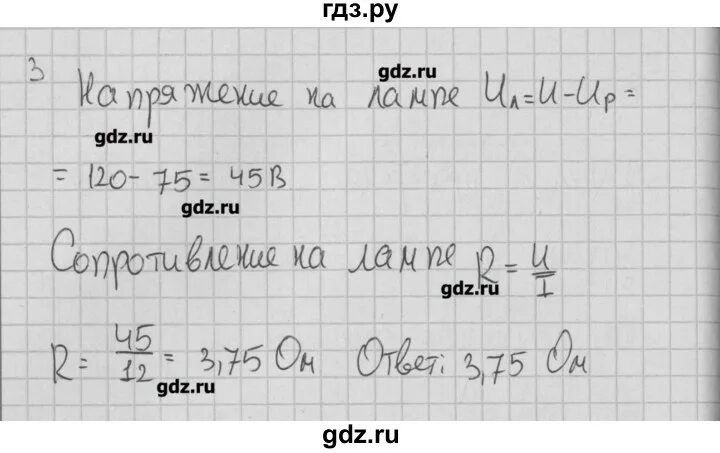 гдз.ру
3 Напряжение на лампе Uл=U-Uр=
gdz.ru
gdz.ru
= 120-75= 45В
gdz.ru
Сопротивление на лампе R=U/I
gdz.ru
R= 45/12= 3,75 Ом Ответ: 3,75 Ом
gdz.ru
gdz.ru